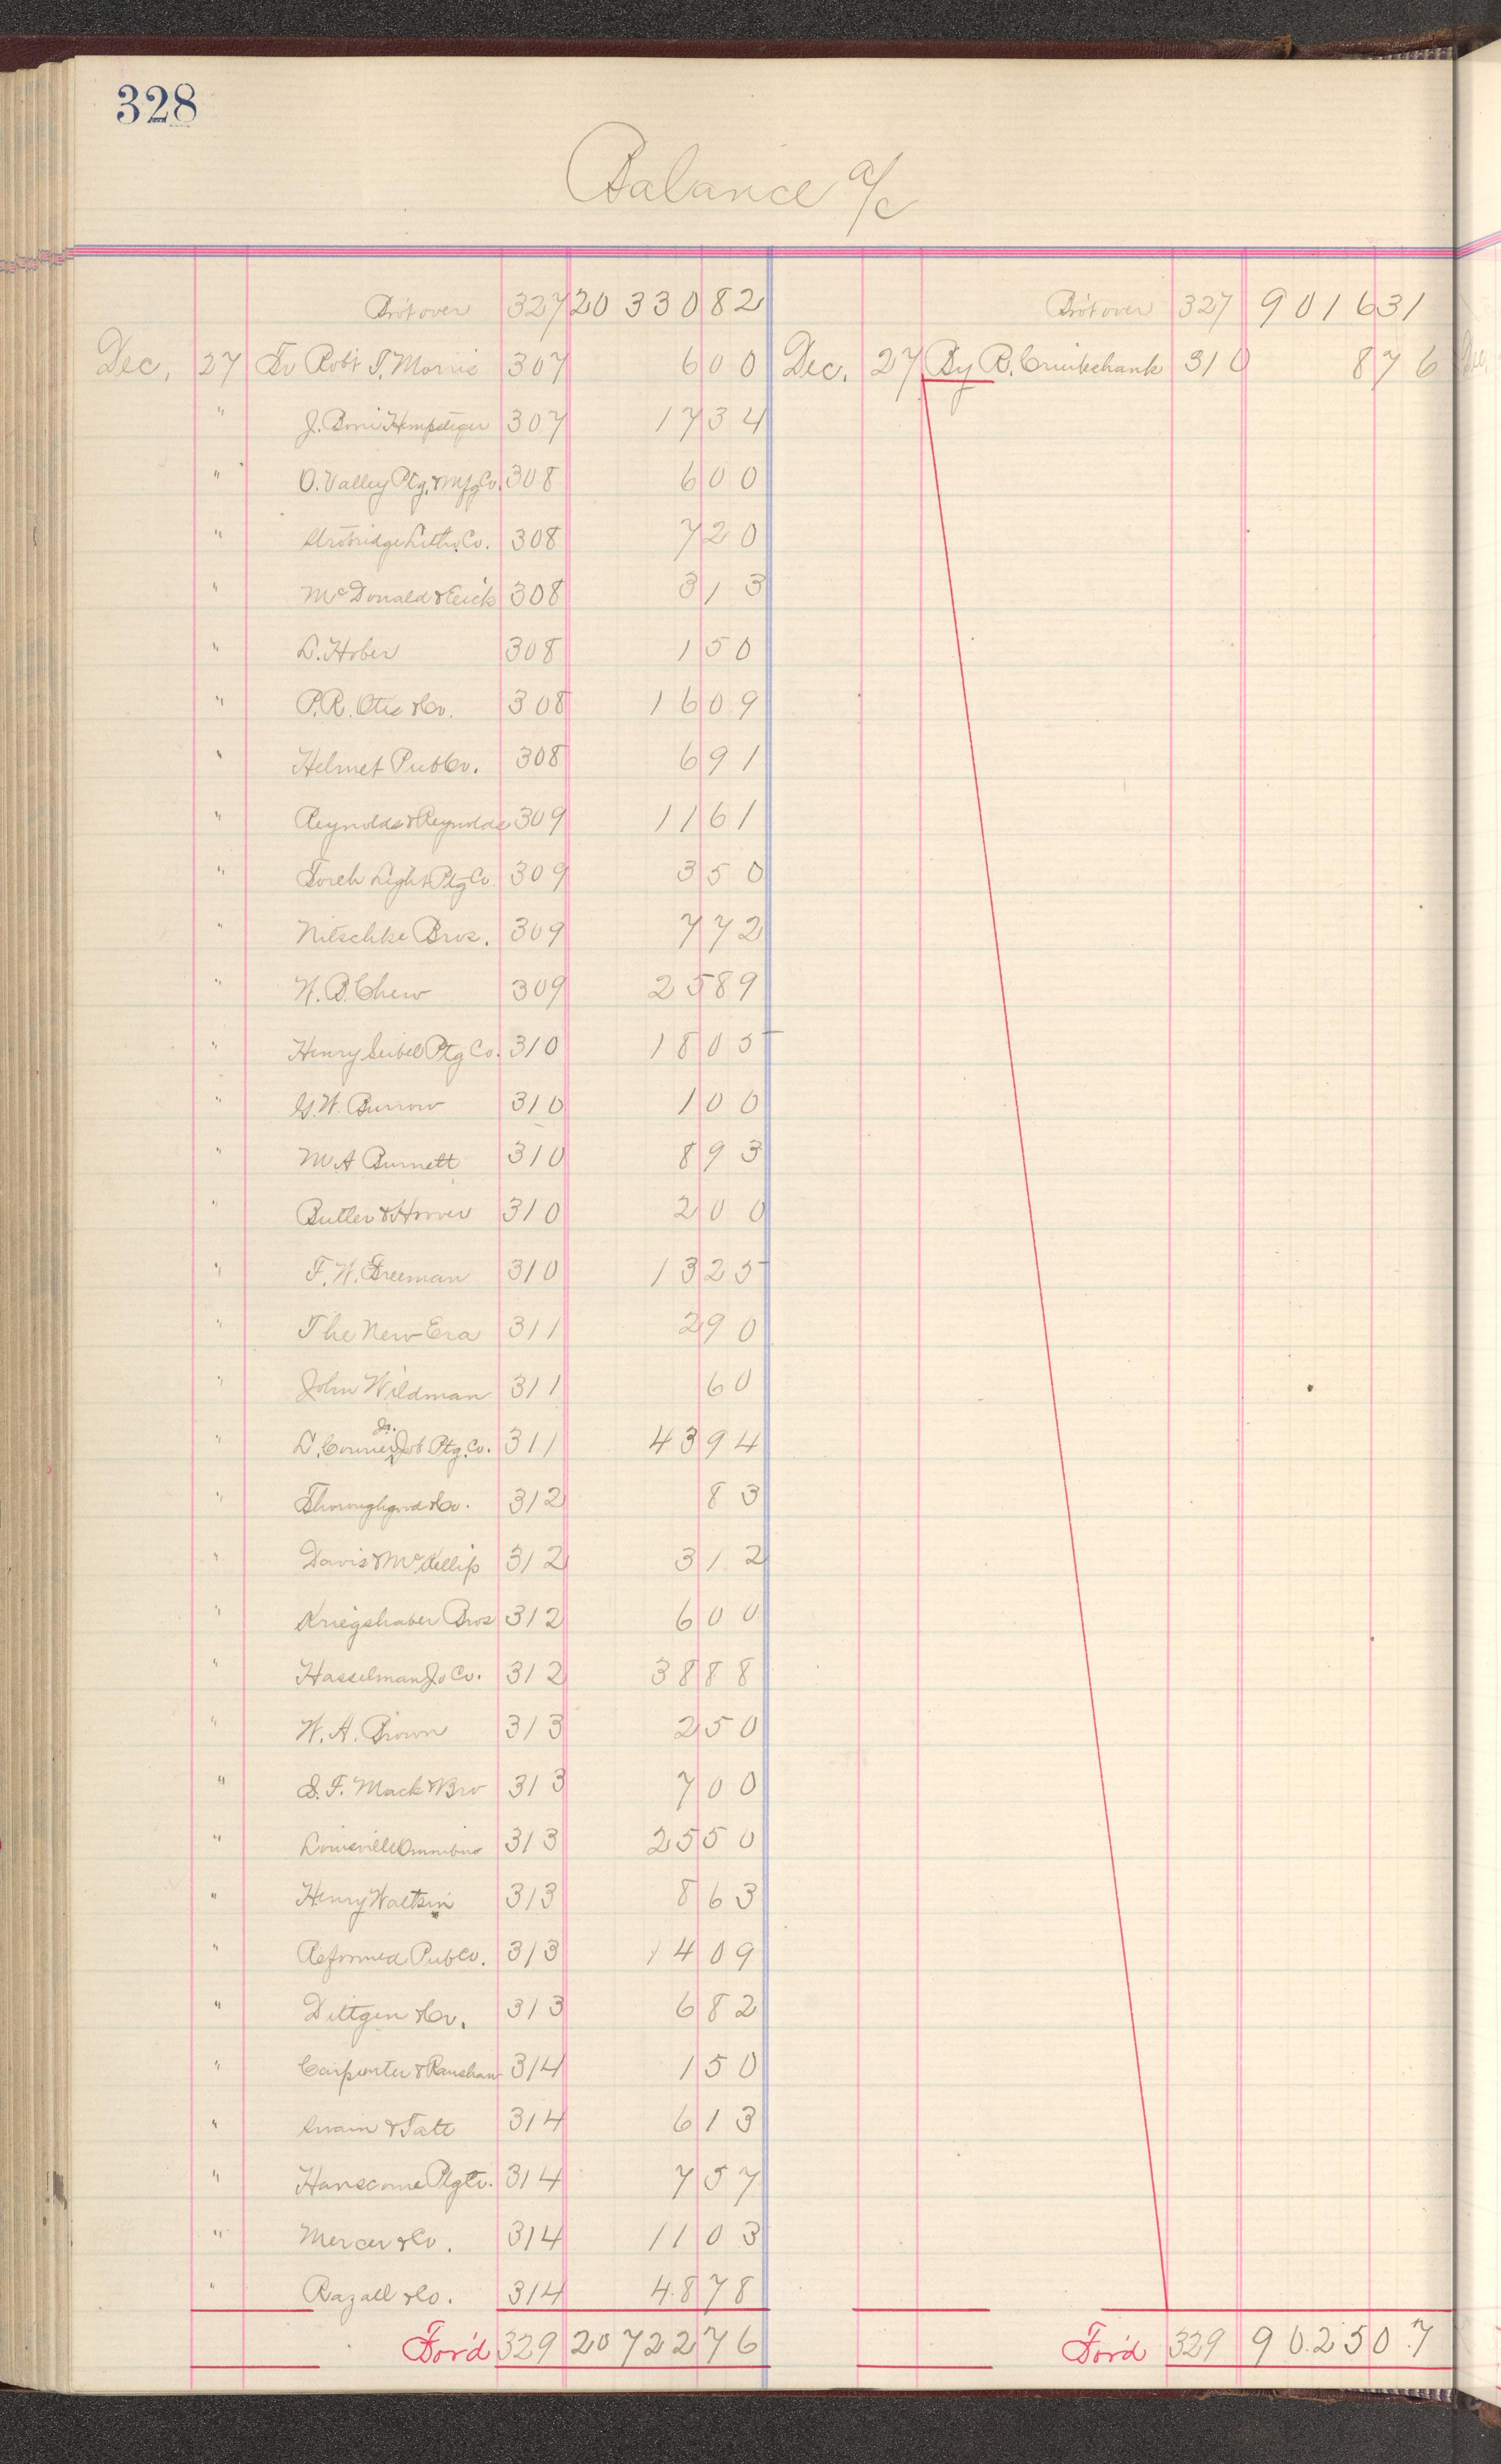 328
Balance a/c
Bro't over 327 20 330 82 Bro't over 327 9 016 31
Dec. 27 To Robt T. Morris 307 6 00 Dec. 27 By R. Cruikshank 310 8 76
" J. Boni 307 17 34
" O. Valley Ptg. & Mfg Co. 308 6 00
" Strobridge Litho. Co. 308 7 20
" McDonald & Eick 308 3 13
" L. Hober 308 1 50
" P.R. Otis & Co. 308 16 09
" Helmet Pub Co. 308 6 91
" Reynolds & Reynolds 309 11 61
" Torch Light Ptg Co. 309 3 50
" Nitschke Bros. 309 7 72
" W. B. Chew 309 25 89
" Henry Seibel Ptg Co. 310 18 05
" G. W. Burrow 310 1 00
" M A Burnett 310 8 93
" Butler & Hoover 310 2 00
" F. W. Freeman 310 13 25
" The New Era 311 2 90
" John Wildman 311 60
" L. Courier Jo. Job Ptg. Co. 311 43 94
" Thoroughgood & Co. 312 83
" Davis & McKellip 312 3 12
" Kriegshaber Bros 312 6 00
" Hasselman Jo Co. 312 38 88
" W. A. Brown 313 2 50
" S. F. Mack & Bro 313 7 00
" Louisville Omnibus 313 25 50
" Henry 313 8 63
" Reformed Pub Co. 313 14 09
" Dittgen & Co. 313 6 82
" Carpenter & Ranshaw 314 1 50
" Swain & Tate 314 6 13
" Hanscome Ptg Co. 314 7 57
" Mercer & Co. 314 11 03
" Razall & Co. 314 48 78
For'd 329 20 722 76 For'd 329 9 025 07